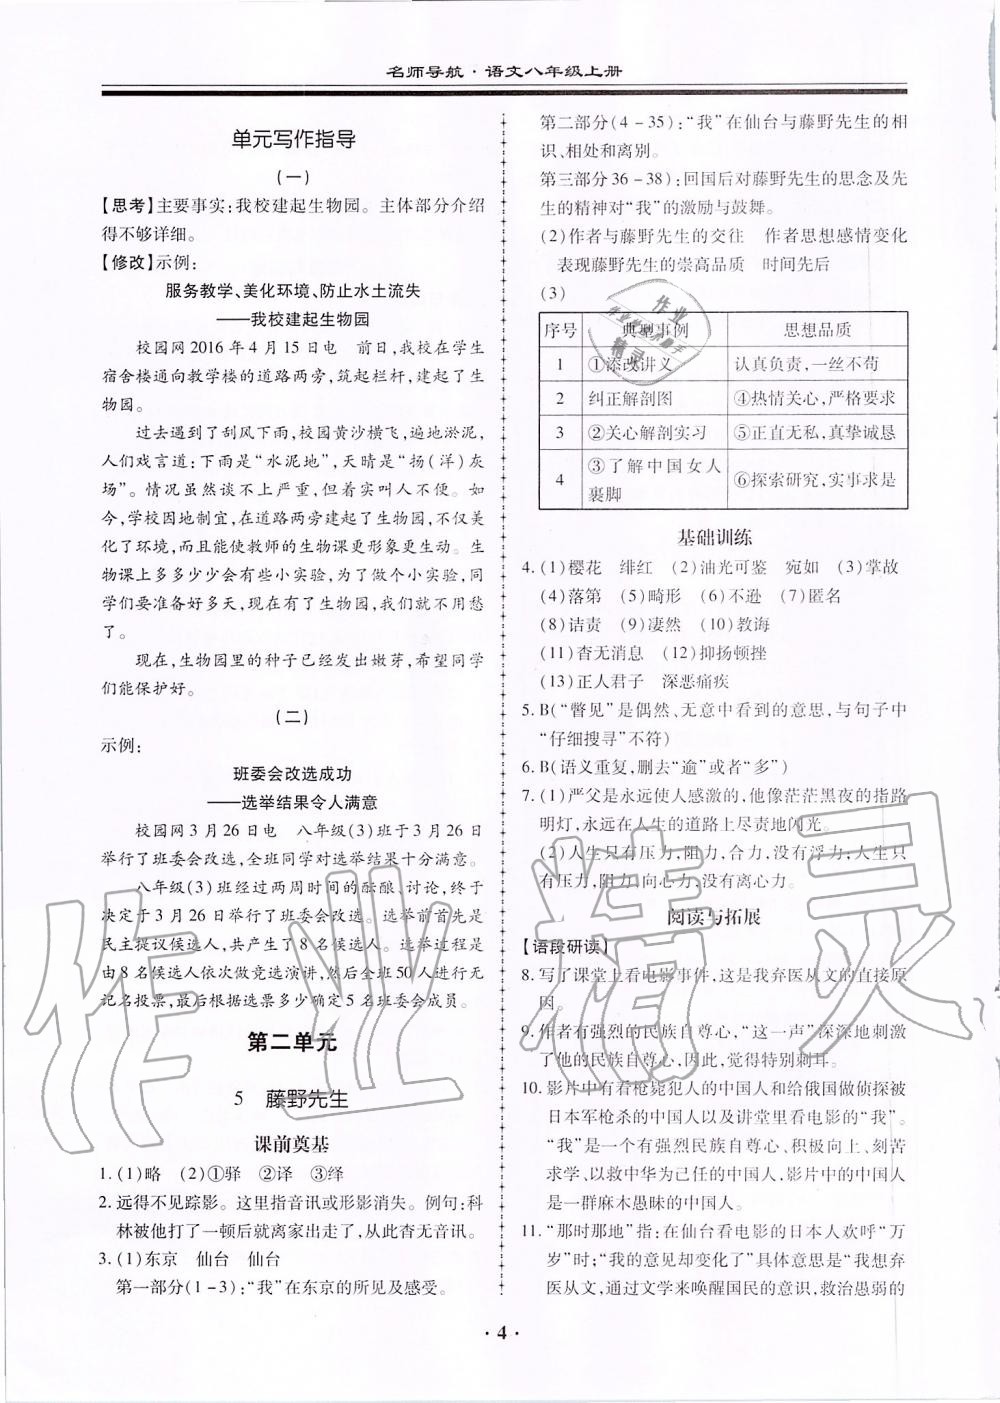 名师导航·语文八年级上册
单元写作指导
(一)
【思考】主要事实:我校建起生物园。主体部分介绍
得不够详细。
【修改】示例:
服务教学、美化环境、防止水土流失
——我校建起生物园
校园网2016年4月15日电　前日,我校在学生
宿舍楼通向教学楼的道路两旁,筑起栏杆,建起了生
物园。
过去遇到了刮风下雨,校园黄沙横飞,遍地淤泥,
人们戏言道:下雨是“水泥地”,天晴是“扬(洋)灰
场”。情况虽然谈不上严重,但着实叫人不便。如
今,学校因地制宜,在道路两旁建起了生物园,不仅美
化了环境,而且能使教师的生物课更形象更生动。生
物课上多多少少会有些小实验,为了做个小实验,同
学们要准备好多天,现在有了生物园,我们就不用愁
了。
现在,生物园里的种子已经发出嫩芽,希望同学
们能保护好。
(二)
示例:
班委会改选成功
——选举结果令人满意
校园网3月26日电　八年级(3)班于3月26日
举行了班委会改选,全班同学对选举结果十分满意。
八年级(3)班经过两周时间的酝酿、讨论,终于
决定于3月26日举行了班委会改选。选举前首先是
民主提议候选人,共产生了8名候选人。选举过程是
由8名候选人依次做竞选演讲,然后全班50人进行无
记名投票,最后根据选票多少确定5名班委会成员。
第二单元
5　藤野先生
课前奠基
1.(1)略　(2)①驿　②译　③绎
2.远得不见踪影。这里指音讯或形影消失。例句:科
林被他打了一顿后就离家出走了,从此杳无音讯。
3.(1)东京　仙台　仙台
第一部分(1-3):“我”在东京的所见及感受。
第二部分(4-35):“我”在仙台与藤野先生的相
识、相处和离别。
第三部分36-38):回国后对藤野先生的思念及先
生的精神对“我”的激励与鼓舞。
(2)作者与藤野先生的交往　作者思想感情变化
表现藤野先生的崇高品质　时间先后
(3)
序号　典型事例　思想品质
1　①添改讲义　认真负责,一丝不苟
2　纠正解剖图　④热情关心,严格要求
3　②关心解剖实习　⑤正直无私,真挚诚恳
4　③了解中国女人裹脚　⑥探索研究,实事求是
基础训练
4.(1)樱花　绯红　(2)油光可鉴　宛如　(3)掌故
(4)落第　(5)畸形　(6)不逊　(7)匿名
(8)诘责　(9)凄然　(10)教诲
(11)杳无消息　(12)抑扬顿挫
(13)正人君子　深恶痛疾
5.B(“瞥见”是偶然、无意中看到的意思,与句子中
“仔细搜寻”不符)
6.B(语义重复,删去“逾”或者“多”)
7.(1)严父是永远使人感激的,他像茫茫黑夜的指路
明灯,永远在人生的道路上尽责地闪光。
(2)人生只有压力,阻力,合力,没有浮力;人生只
有压力,阻力,向心力,没有离心力。
阅读与拓展
【语段研读】
8.写了课堂上看电影事件,这是我弃医从文的直接原
因。
9.作者有强烈的民族自尊心,“这一声”深深地刺激
了他的民族自尊心,因此,觉得特别刺耳。
10.影片中有看枪毙犯人的中国人和给俄国做侦探被
日本军枪杀的中国人以及讲堂里看电影的“我”。
“我”是一个有强烈民族自尊心、积极向上、刻苦
求学、以救中华为己任的中国人,影片中的中国人
是一群麻木愚昧的中国人。
11.“那时那地”指:在仙台看电影的日本人欢呼“万
岁”时;“我的意见却变化了”具体意思是“我想弃
医从文,通过文学来唤醒国民的意识,救治愚弱的
·4·
作业精灵
作业
作业的好帮手
精灵